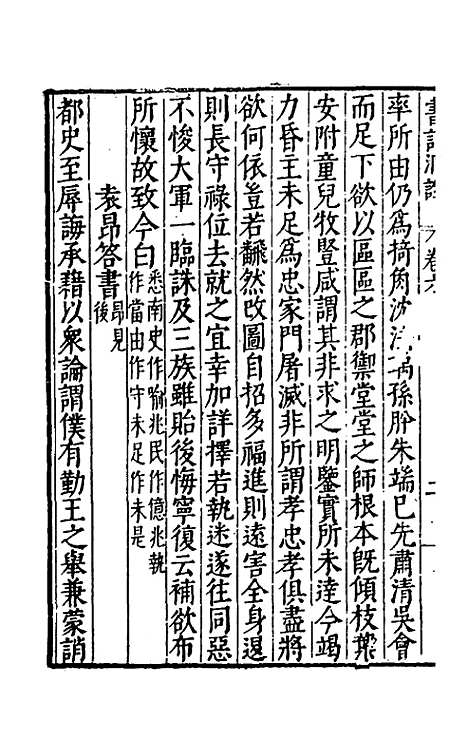 書記洞詮 卷六
率所由仍爲掎角沈法瑀孫肸朱端已先肅清吳會
而足下欲以區區之郡禦堂堂之師根本既傾枝葉
安附童兒牧豎咸謂其非求之明鑒實所未達今竭
力昏主未足爲忠家門屠滅非所謂孝忠孝俱盡將
欲何依豈若翻然改圖自招多福進則遠害全身退
則長守祿位去就之宜幸加詳擇若執迷遂往同惡
不悛大軍一臨誅及三族雖貽後悔寧復云補欲布
所懷故致今白悉南史作喻兆民作億兆執
作當由作守未足作未是
袁昂答書昂見
後
都史至辱誨承藉以衆論謂僕有勤王之舉兼蒙誚